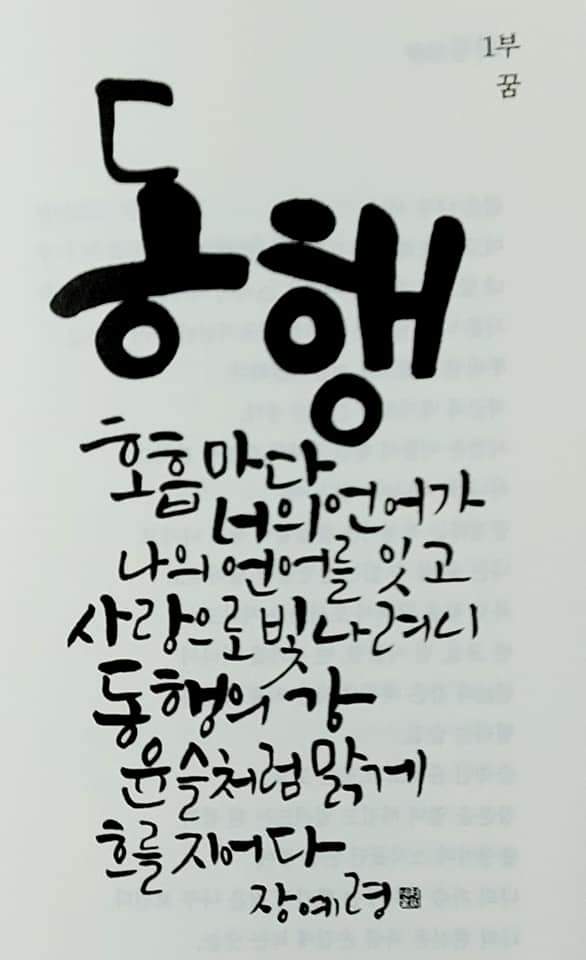 1부
꿈
동행
호흡마다
너의 언어가
나의 언어를 잇고
사랑으로 빛나려니
동행의 강
윤슬처럼 맑게
흐를지어다
장예령